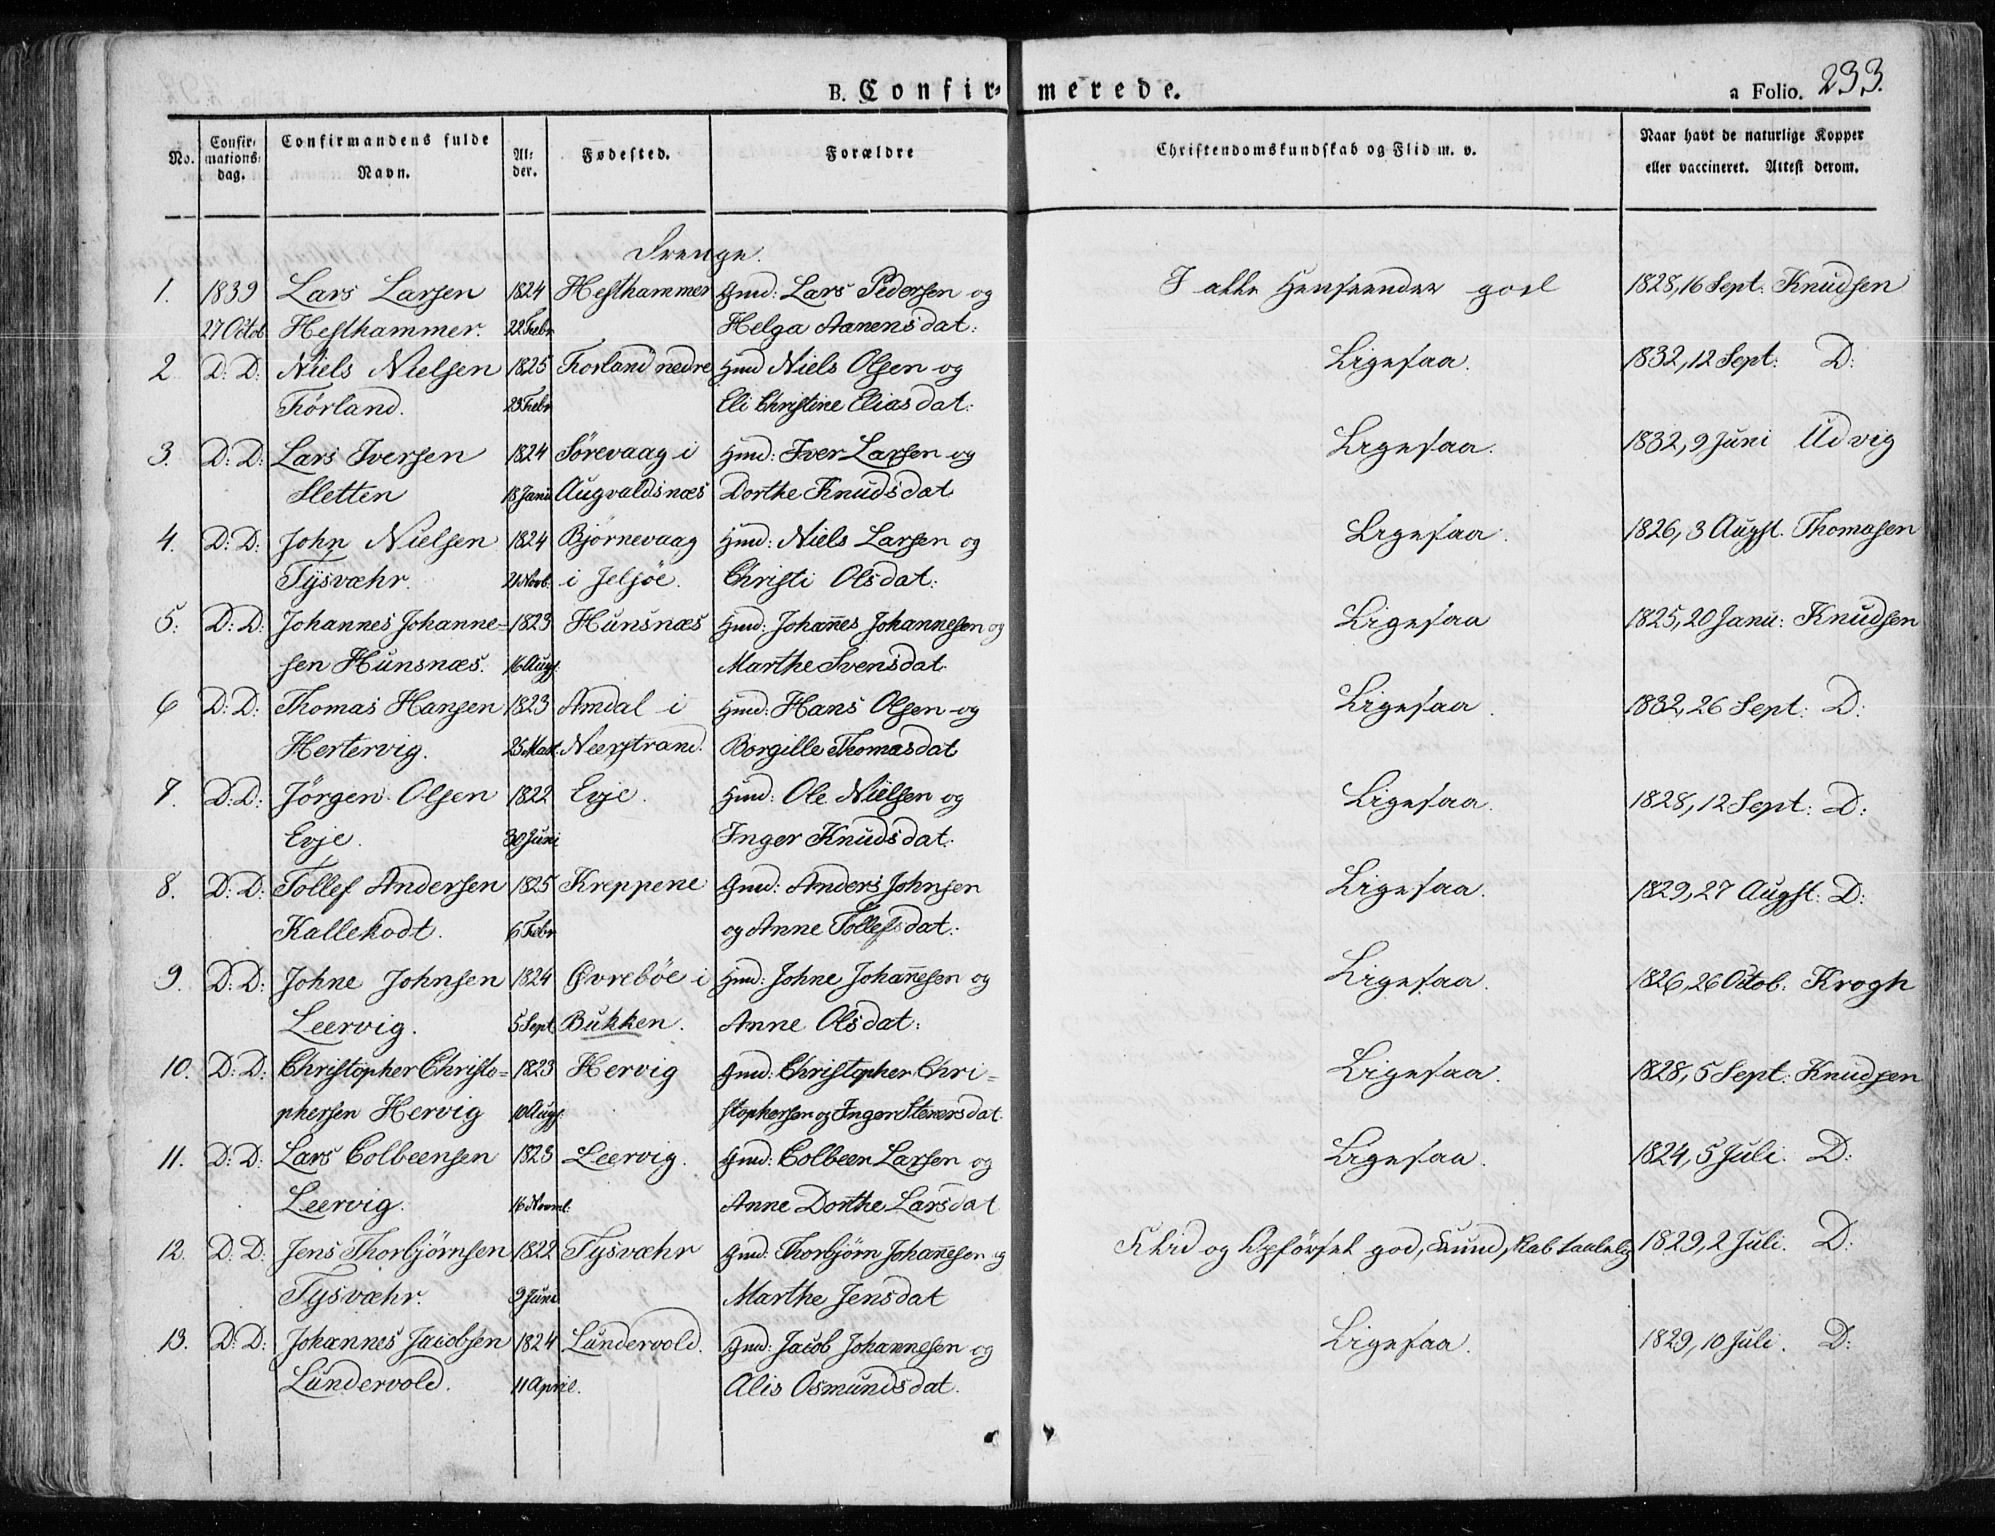 B. Confirmerede.
a Folio. 233.
No. Confirmationsdag. Confirmandens fulde Navn. Alder. Fødested. Forældre Christendomskundskab og Flid m. v. Naar havt de naturlige Kopper eller vaccineret. Attest derom.
Drenge.
1. 1839 Lars Larsen 1824 Hesthammer Gmd: Lars Pedersen og I alle Henseender god 1828, 16 Sept: Knudsen
27 Octob Hesthammer. 22 Febr Helga Aanensdat:
2 D: D: Niels Nielsen 1825 Førland nedre Hmd Niels Olsen og Ligesaa. 1832, 12 Sept: D:
Førland. 23 Febr Eli Christine Eliasdat:
3. D: D: Lars Iversen 1824 Sørevaag i Hmd: Iver Larsen og Ligesaa. 1832, 9 Juni Udvig
Sletten 18 Janu Augvaldsnæs Dorthe Knudsdat
4. D: D: John Nielsen 1824 Bjørnevaag Hmd: Niels Larsen og Ligesaa. 1826, 3 Augst. Thomasen
Tysvæhr. 21 Novb. i Jelsøe. Christi Olsdat:
5: D: D: Johannes Johanne= 1823 Hunsnæs Hmd: Johan̅es Johannesen og Ligesaa 1825, 20 Janu: Knudsen
sen Hunsnæs. 16 Augs. Marthe Svensdat.
6 D: D: Thomas Hansen 1823 Amdal i Hmd: Hans Olsen og Ligesaa. 1832, 26 Sept: D:
Hertervig. 25 Mart. Neerstrand. Borgille Thomasdat
7. D: D: Jørgen Olsen 1822 Evje. Hmd: Ole Nielsen og Ligesaa. 1828, 12 Sept: D:
Evje. 30 Juni Inger Knudsdat.
8. D: D: Tollef Andersen 1825 Kreppene Gmd: Anders Johnsen Ligesaa. 1829, 27 Augst: D:
Kallekodt. 6 Febr og Anne Tollefsdat:
9. D: D: Johne Johnsen 1824 Øvrebøe i Hmd: Johne Johan̅esen og Ligesaa. 1826, 26 Octob: Krogh
Leervig. 5 Sept Bukken. Anne Olsdat:
10. D: D: Christopher Christo= 1823 Hervig Gmd: Christopher Chri= Ligesaa. 1828, 5 Sept: Knudsen
phersen Hervig 10 Augs. stophersen og Inger Steversdat.
11. D: D: Lars Colbeensen 1823 Leervig. Gmd: Colbeen Larsen og Ligesaa. 1824, 5 Juli. D:
Leervig. 16 Novmb. Anne Dorthe Larsdat
12. D: D: Jens Thorbjørnsen 1822 Tysvæhr Gmd: Thorbjørn Johan̅esen og Flid og Opførsel god, Kundskab taalelig 1829, 2 Juli. D:
Tysvæhr. 9 Juni Marthe Jensdat
13. D: D: Johannes Jacobsen 1824 Lundervold. Gmd: Jacob Johannesen og Ligesaa. 1829, 10 Juli. D:
Lundervold. 11 April. Alis Osmundsdat.